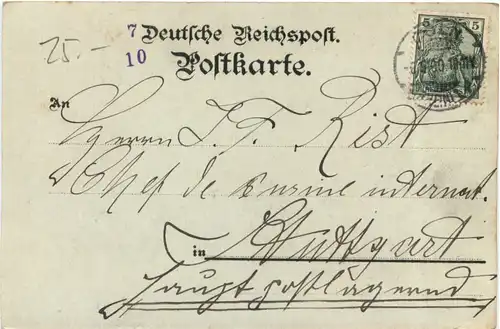 25.-
7
10
Deutsche Reichspost.
Postkarte.
5 5
An
Herrn J. F. Rist
Chef de cuisine internat.
in Stuttgart
hauptpostlagernd